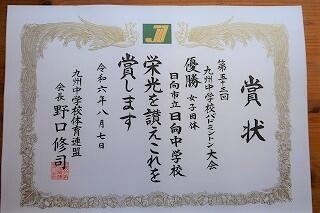 賞状
第五十三回
九州中学校バドミントン大会
優勝 女子団体
日向市立日向中学校
栄光を讃えこれを
賞します
令和六年八月七日
九州中学校体育連盟
会長 野口修司